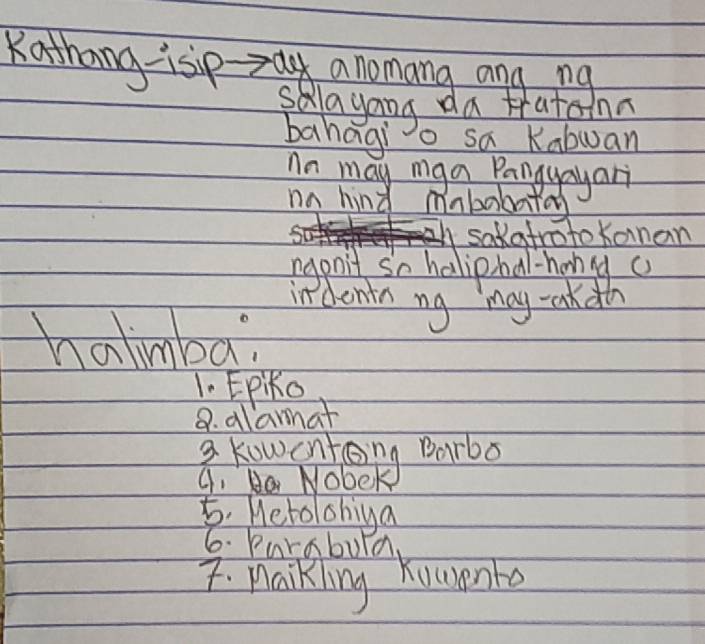 Kathang-isip→ay anomang ang ng
salayang da tratoinn
bahagi o sa Kabwan
na may mga Pangyayari
na hind mababatay
sakatrotokanan
ngonit sa haliphal-hahng o
indenta ng may-akda
halimba:
1. Epiko
2. alamat
3 kuwentong Barbo
4. Nobek
5. Metolohiya
6. Parabula,
7. Maikling kuwento